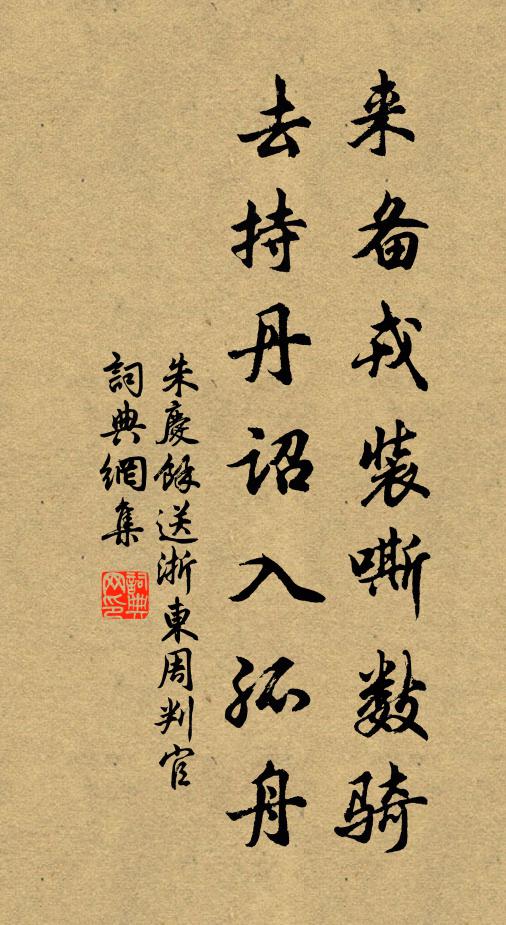 来备戎装嘶数骑
去持丹诏入孤舟
朱慶餘送浙東周判官
詞典網集
詞典网印